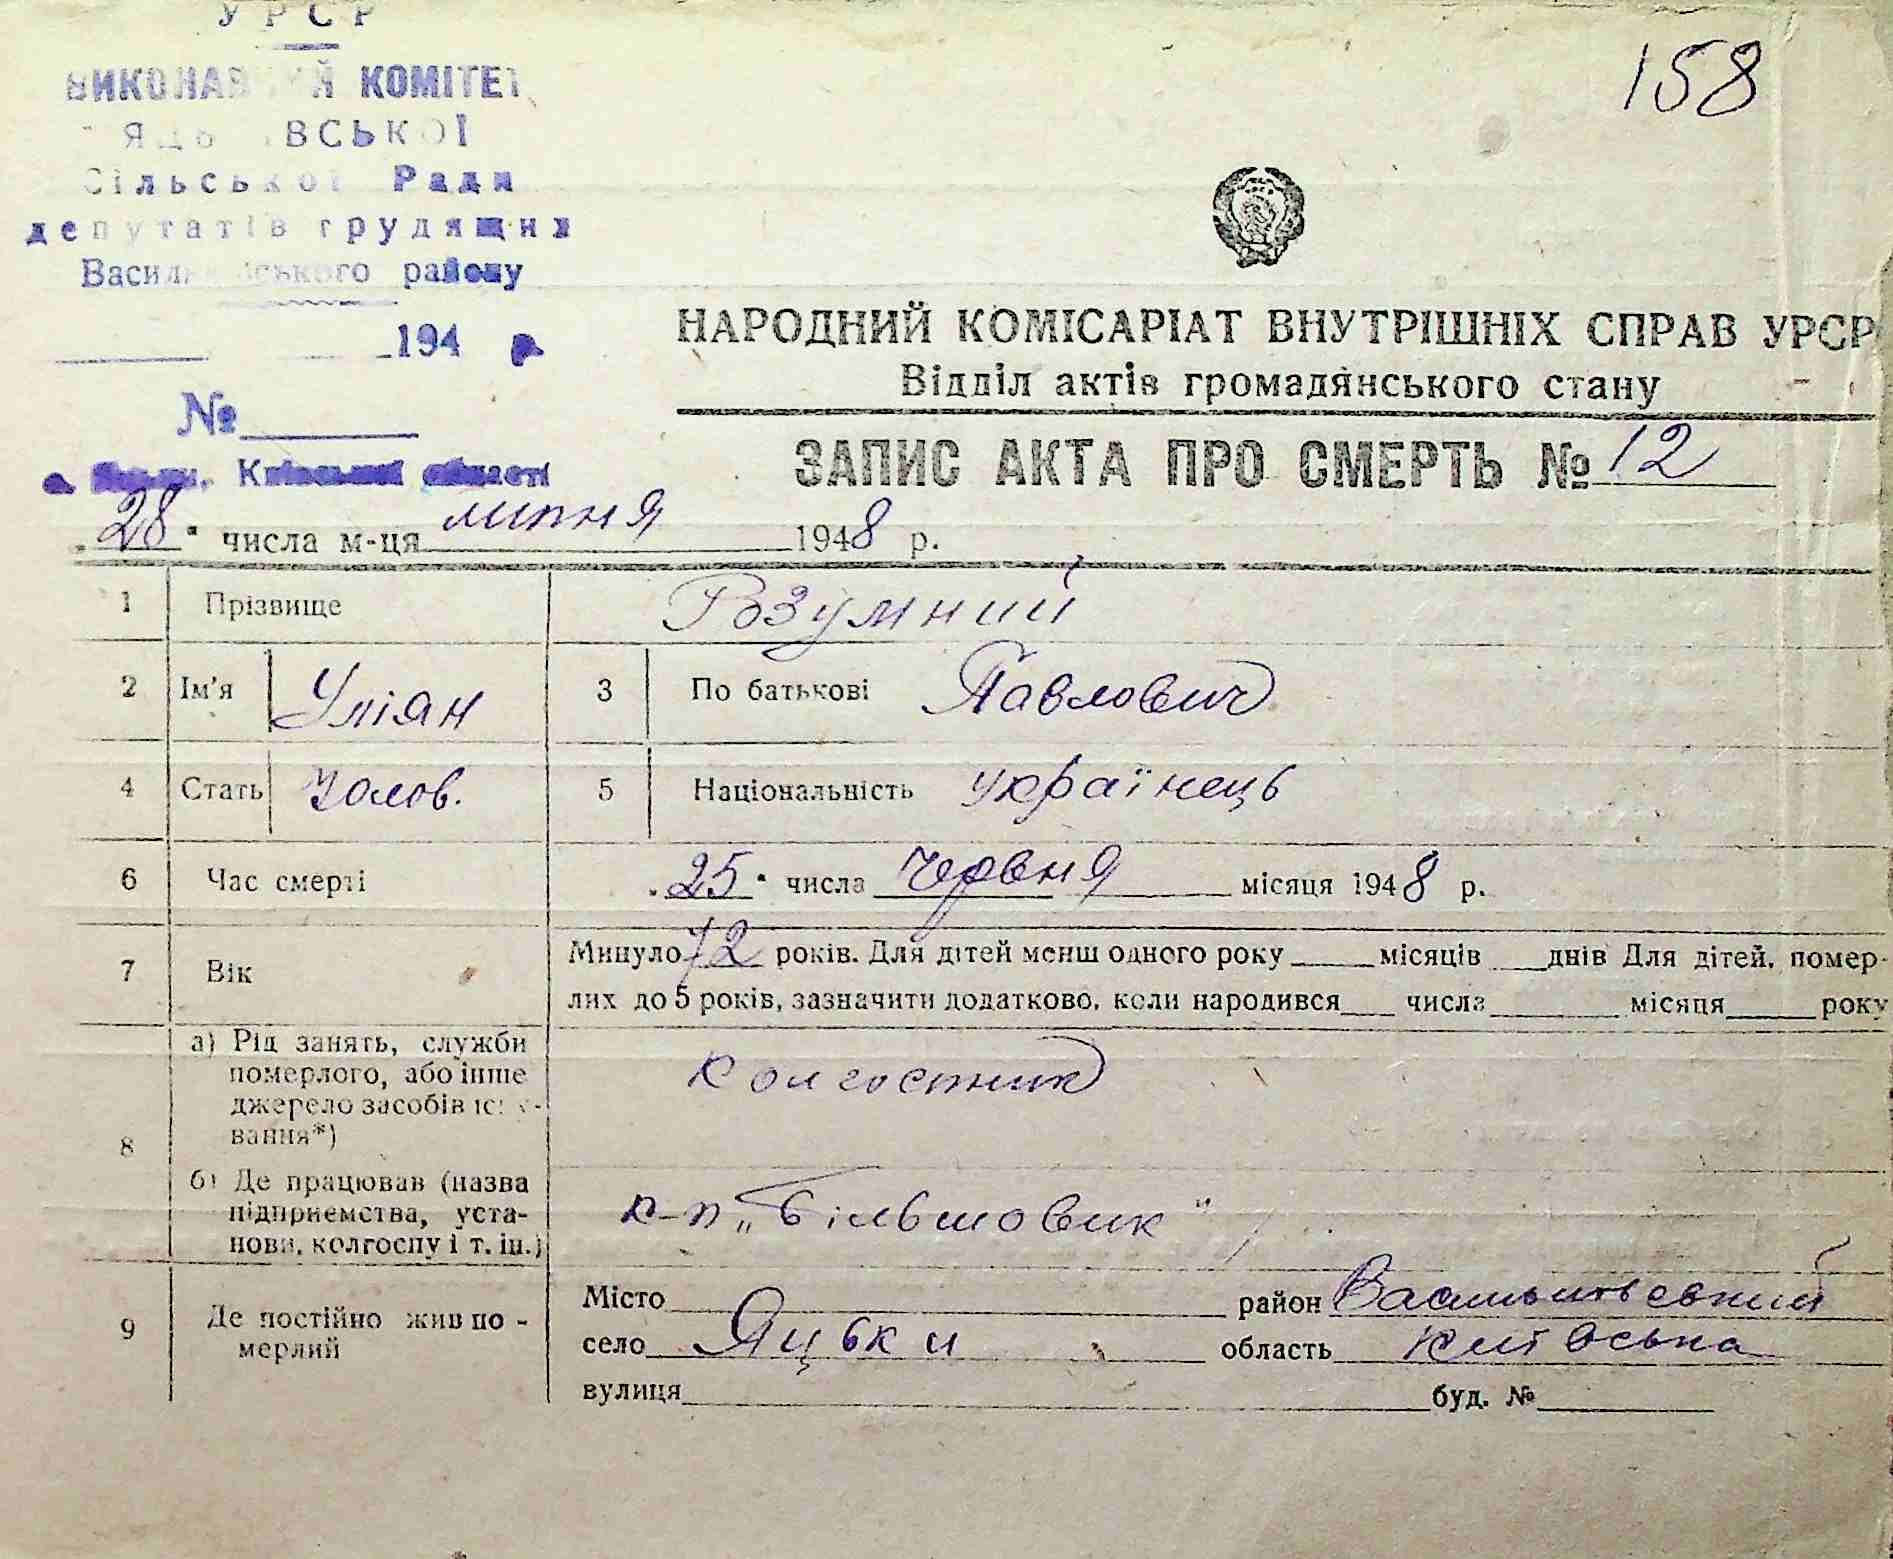 УРСР
158
ВИКОНАВЧИЙ КОМІТЕТ
ЯЦЬКІВСЬКОЇ
Сільської Ради
депутатів трудящих
Васильківського району
194
НАРОДНИЙ КОМІСАРІАТ ВНУТРІШНІХ СПРАВ УРСР
Відділ актів громадянського стану
№
ЗАПИС АКТА ПРО СМЕРТЬ № 12
Київської області
"28" числа м-ця липня 1948 р.
1 Прізвище Розумний
2 Ім'я Уліян 3 По батькові Павлович
4 Стать Чолов. 5 Національність українець
6 Час смерті "25" числа червня місяця 1948 р.
7 Вік Минуло 72 років. Для дітей менш одного року місяців днів Для дітей, помер-
лих до 5 років, зазначити додатково, коли народився числа місяця року
8 а) Рід занять, служби
померлого, або інше
джерело засобів існу-
вання*)
колгоспник
б) Де працював (назва
підприємства, уста-
нови, колгоспу і т. ін.)
к-п „Більшовик"
9 Де постійно жив по-
мерлий
Місто район Васильківський
село Яцьки область Київська
вулиця буд. №